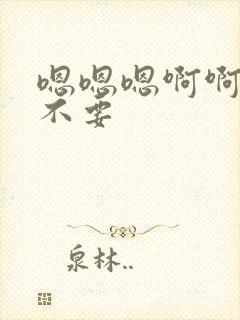 嗯嗯嗯啊啊
不要
泉林..